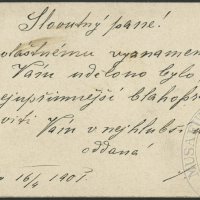 Slovutný pane!
vyznamen
Vám uděleno bylo
nejupřímnější blahopř
Vám v nejhlubší
oddaná
16/4 1901
MUSA